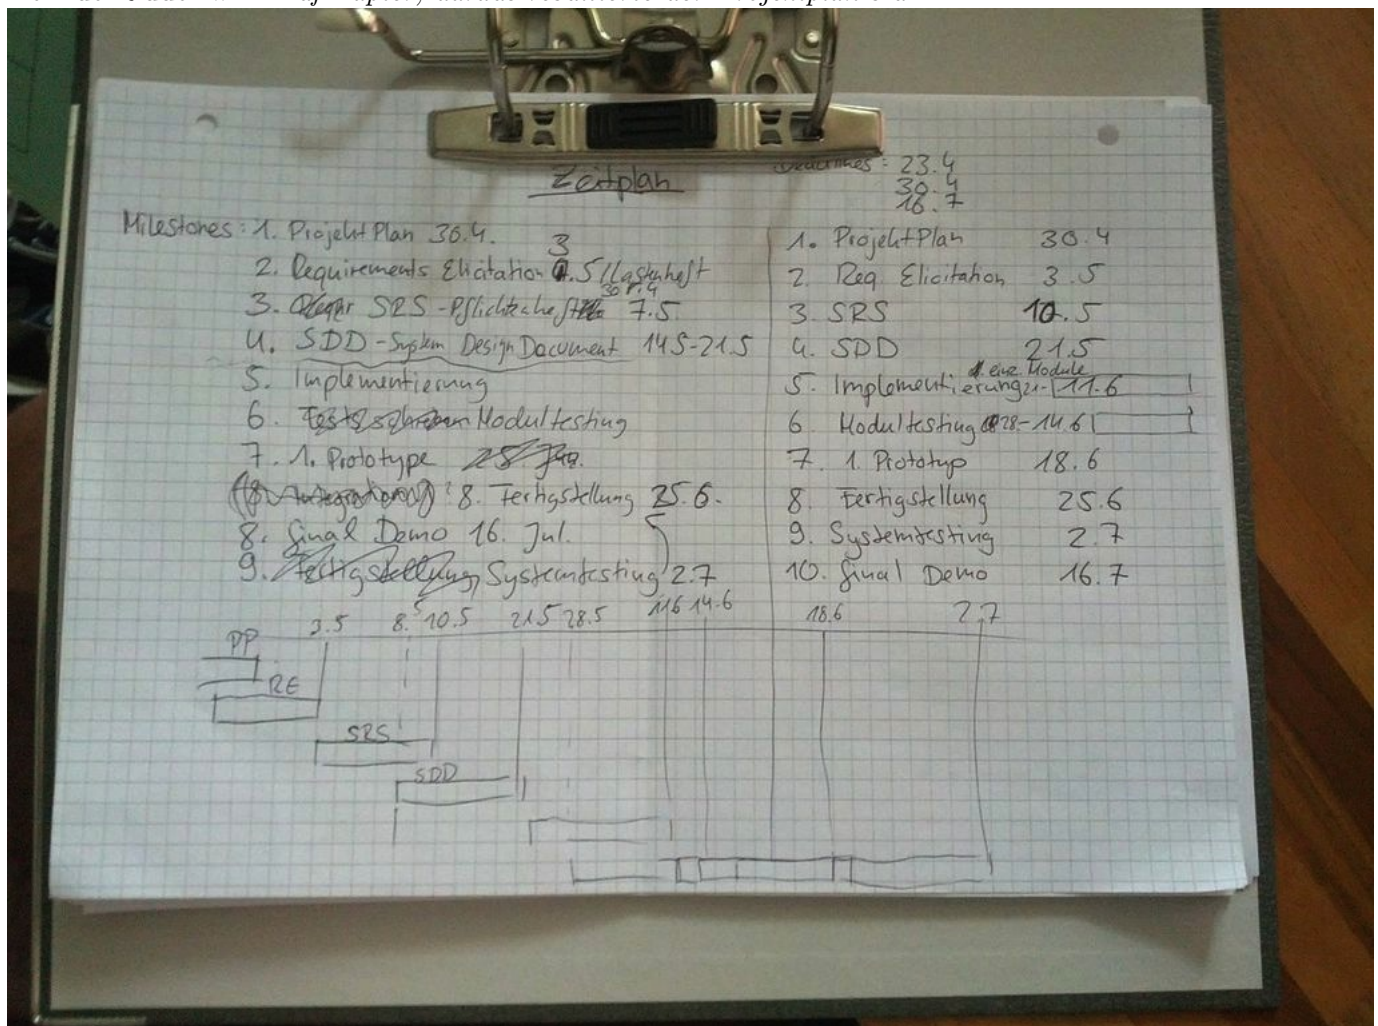 Zeitplan
Deadlines: 23.4
30.4
16.7
Milestones: 1. ProjektPlan 30.4.
2. Requirements Elicitation 3.5 / Lastenheft
3. SRS - Pflichtenheft 7.5.
4. SDD - System Design Document 14.5-21.5
5. Implementierung
6. Modultesting
7. 1. Prototype
8. Fertigstellung 25.6.
8. Final Demo 16. Jul.
9. Systemtesting 2.7
1. ProjektPlan 30.4
2. Req. Elicitation 3.5
3. SRS 10.5
4. SDD 21.5
d. einz. Module
5. Implementierung 21-11.6
6 Modultesting 28-14.6
7. 1. Prototyp 18.6
8. Fertigstellung 25.6
9. Systemtesting 2.7
10. Final Demo 16.7
3.5 8.5 10.5 21.5 28.5 11.6 14.6 18.6 2.7
PP
RE
SRS
SDD